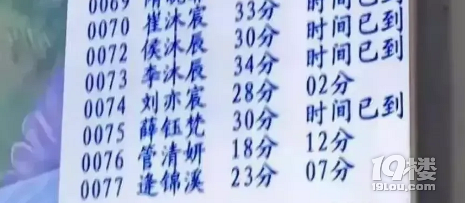 0069 隋
0070 崔沐宸 33分 时间已到
0072 侯沐辰 30分 时间已到
0073 李沐辰 34分 时间已到
0074 刘亦宸 28分 02分
0075 薛钰梵 30分 时间已到
0076 管清妍 18分 12分
0077 逄锦溪 23分 07分
19楼
19lou.com